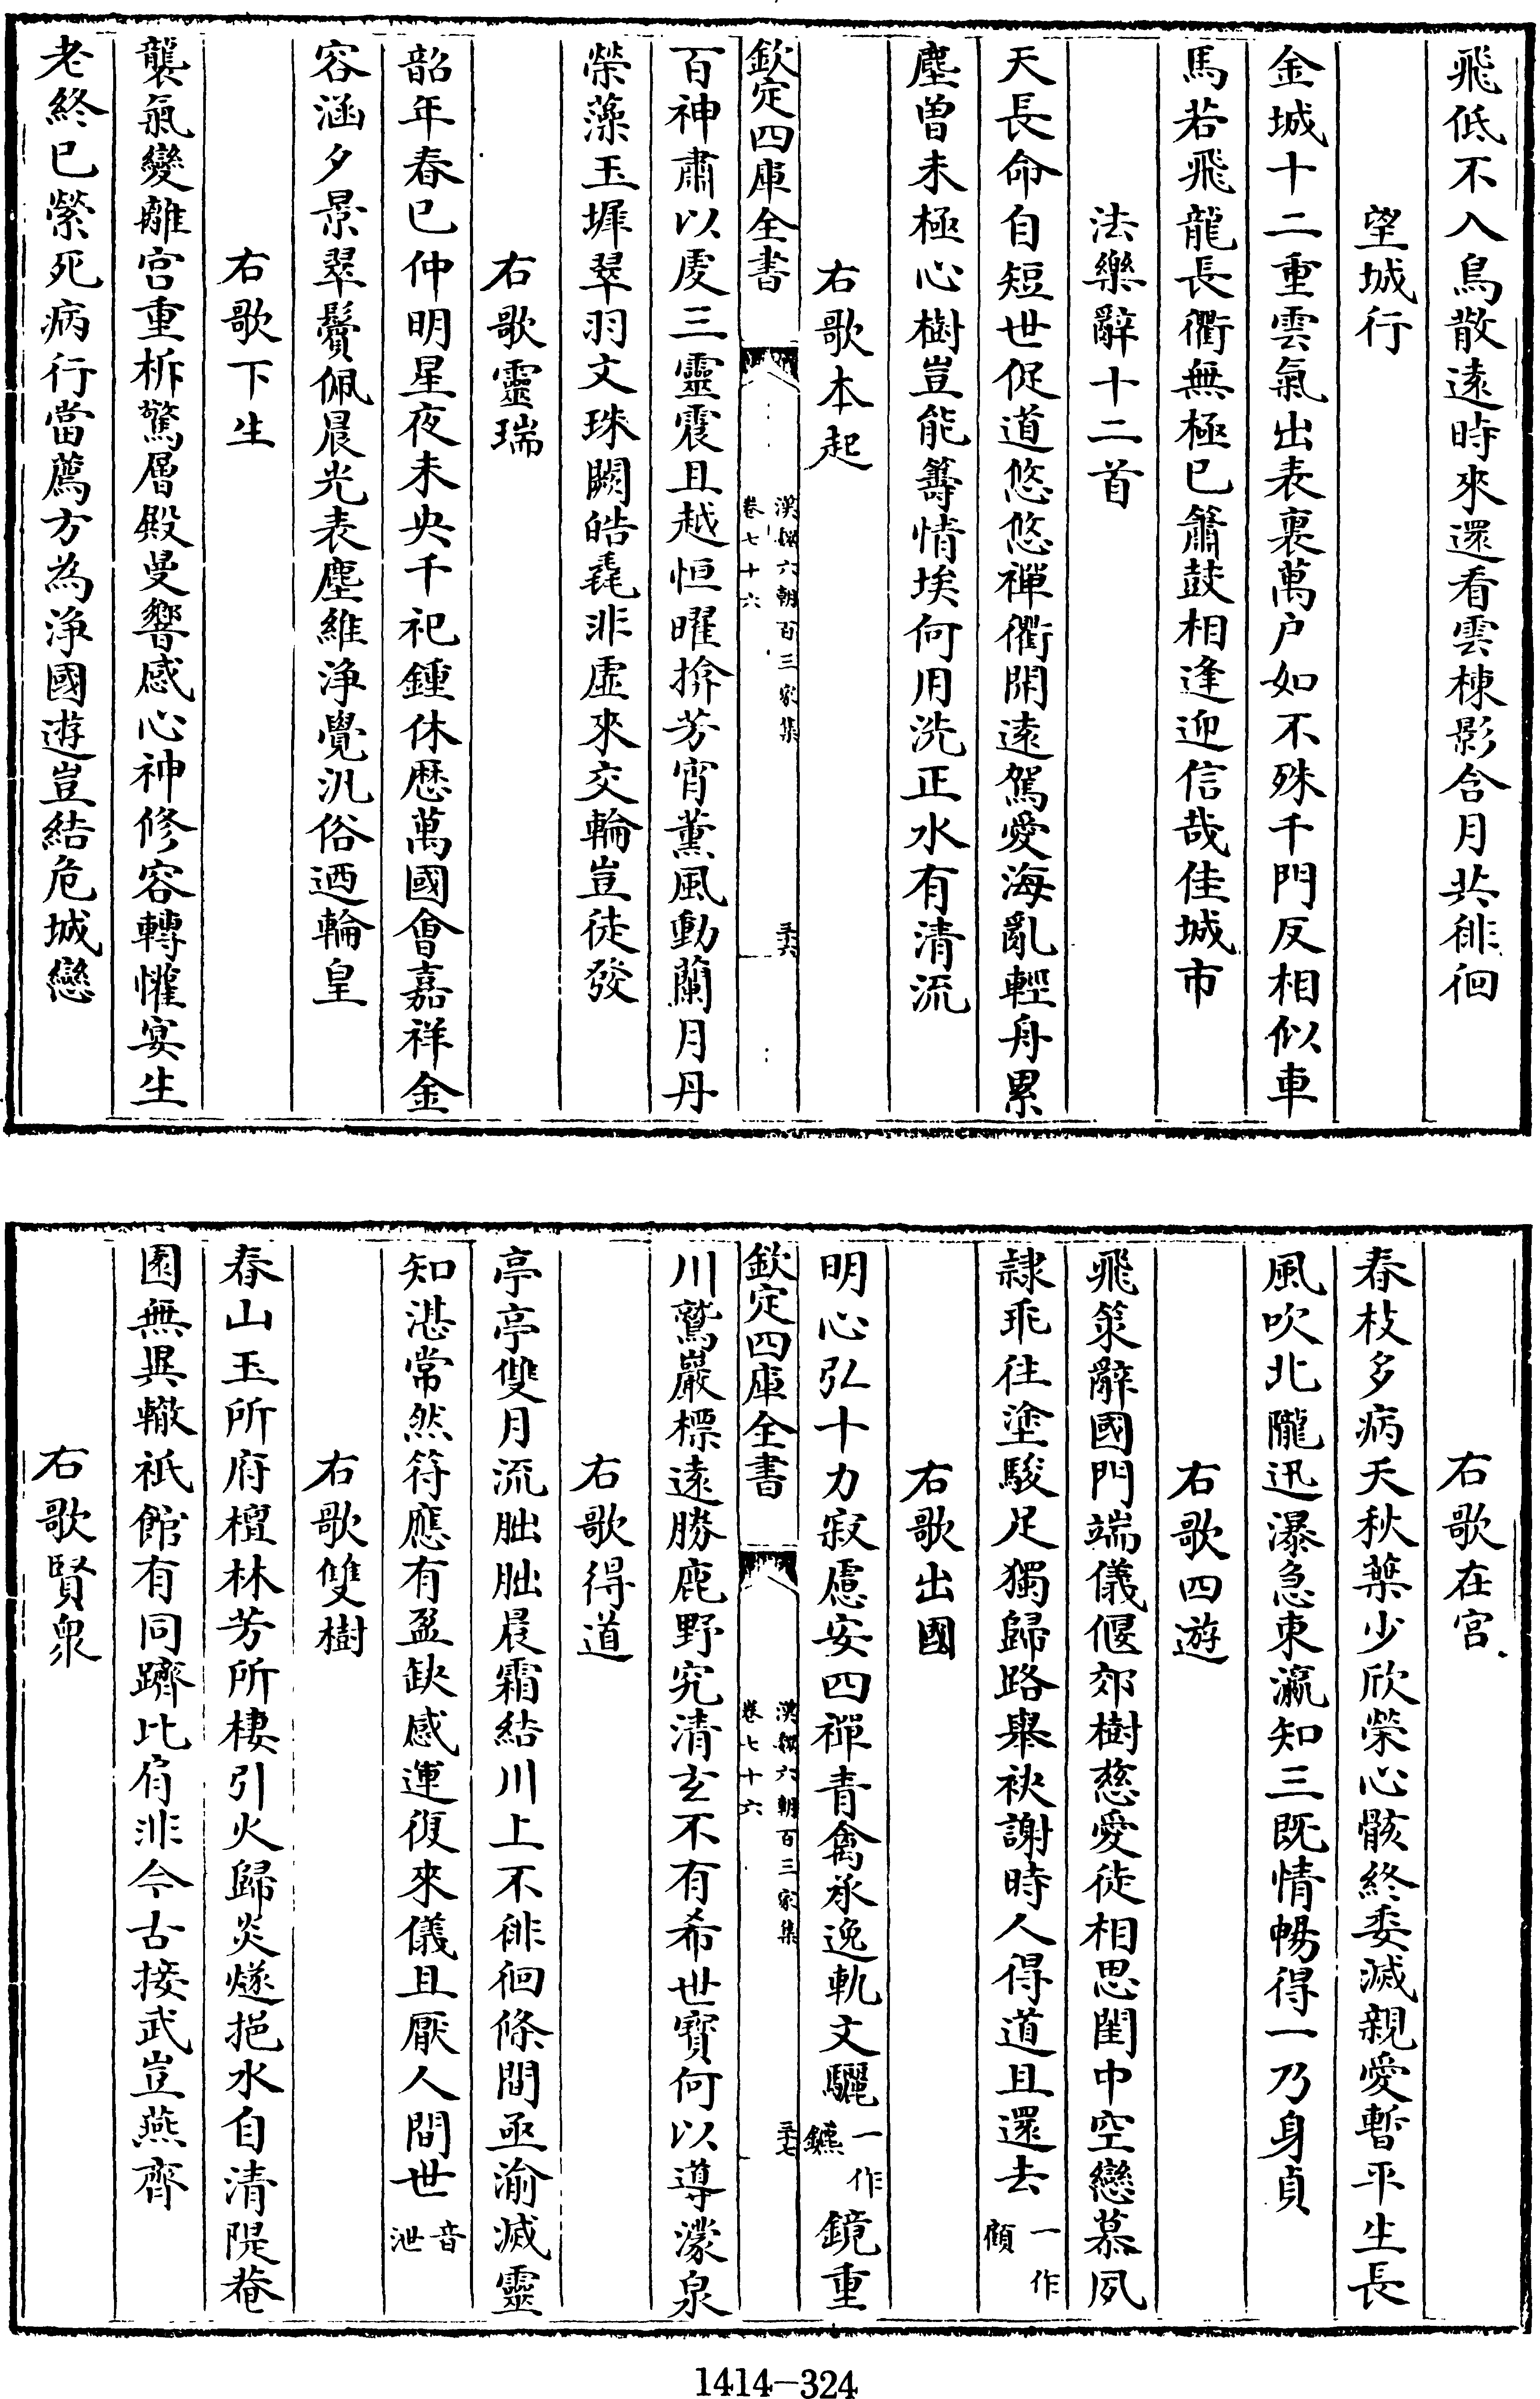 飛低不入鳥散遠時來還看雲棟影含月共徘徊
望城行
金城十二重雲氣出表裏萬户如不殊千門反相似車
馬若飛龍長衢無極已簫鼓相逢迎信哉佳城市
法樂辭十二首
天長命自短世促道悠悠禪衢開遠駕愛海亂輕舟累
塵曽未極心樹豈能籌情埃何用洗正水有清流
右歌本起
欽定四庫全書
漢魏六朝百三家集
卷七十六
三十六
百神肅以䖍三靈震且越恒曜揜芳宵薰風動蘭月丹
榮藻玉墀翠羽文珠闕皓毳非虛來交輪豈徒發
右歌靈瑞
韶年春已仲明星夜未央千祀鍾休歴萬國會嘉祥金
容涵夕景翠鬢佩晨光表塵維浄覺汎俗迺輪皇
右歌下生
襲氣變離宫重柝驚層殿曼響感心神修容轉懽宴生
老終已縈死病行當薦方為浄國遊豈結危城戀
右歌在宫
春枝多病夭秋葉少欣榮心骸終委滅親愛暫平生長
風吹北隴迅瀑急東瀛知三既情暢得一乃身貞
右歌四遊
飛策辭國門端儀偃郊樹慈愛徒相思閨中空戀慕夙
隷乖往塗駿足獨歸路舉袂謝時人得道且還去一作顧
右歌出國
明心弘十力寂慮安四禪青禽承逸軌文驪一作鑣鏡重
欽定四庫全書
漢魏六朝百三家集
卷七十六
三十七
川鷲巖標遠勝鹿野究清玄不有希世寳何以導濛泉
右歌得道
亭亭雙月流朏朏晨霜結川上不徘徊條間亟渝滅靈
知湛常然符應有盈缺感運復來儀且厭人間世音泄
右歌雙樹
春山玉所府檀林芳所棲引火歸炎燧挹水自清隄菴
園無異轍祇館有同躋比肩非今古接武豈燕齊
右歌賢衆
1414-324